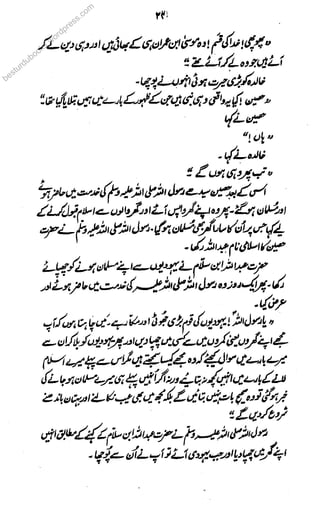 ۲۲۱
besturdubooks.wordpress.com
"پھوپھی! خدا کی قسم! وہ موسیٰ ابن عمران ہی کے بھائی ہیں اور وہی دین لے کر
آئے ہیں جو وہ لے کر آئے تھے"
خالدہ کو بڑی حیرت ہوئی انہوں نے پوچھا۔
"حصین! کیا یہ واقعی وہی نبی ہیں جن کے ظہور کے بارے میں ہمیں بتلایا گیا تھا"
حصین نے کہا
"ہاں!"
خالدہ نے کہا۔
"تب پھر وہی ہوں گے"
اس کے بعد حصین سیدھے رسول اللہ صلی اللہ علیہ وسلم کی خدمت میں حاضر ہوئے
اور مسلمان ہو گئے۔ پھر وہ اپنے گھر واپس آئے اور گھر والوں سے اسلام قبول کرنے کے
لئے کہا جس پر ان کا سارا گھر بھی مسلمان ہو گیا۔ رسول اللہ صلی اللہ علیہ وسلم نے حضرت
حصین کا اسلامی نام عبد اللہ رکھا۔
حضرت عبد اللہ ابن سلام نے یہودیوں سے اپنے مسلمان ہونے کو چھپائے
رکھا۔ پھر ایک روز وہ رسول اللہ صلی اللہ علیہ وسلم کی خدمت میں حاضر ہوئے اور
عرض کیا۔
"یا رسول اللہ! یہودیوں کی قوم بڑی جھوٹی اور مکار ہے۔ میں چاہتا ہوں کہ آپ
مجھے اپنے گھروں میں کسی میں چھپا دیں اور پھر یہودیوں کو بلا کر ان سے
میرے بارے میں سوال کیجئے کہ وہ مجھے کیسا سمجھتے ہیں مگر اس سے پہلے میرے اسلام
لانے کے بارے میں انہیں کچھ نہ بتائیے ورنہ اگر انہیں پہلے ہی میرے مسلمان ہو جانے کی
خبر ہو گئی تو وہ صحیح بات نہیں بتائیں گے بلکہ مجھ میں بھی عیب نکالنے اور بہتان باندھنے
شروع کر دیں گے"
رسول اللہ صلی اللہ علیہ وسلم نے حضرت عبد اللہ ابن سلام کے کہنے کے مطابق انہیں
اپنے گھر میں چھپا دیا اور جب یہودی آئے تو آپ نے ان سے پوچھا۔